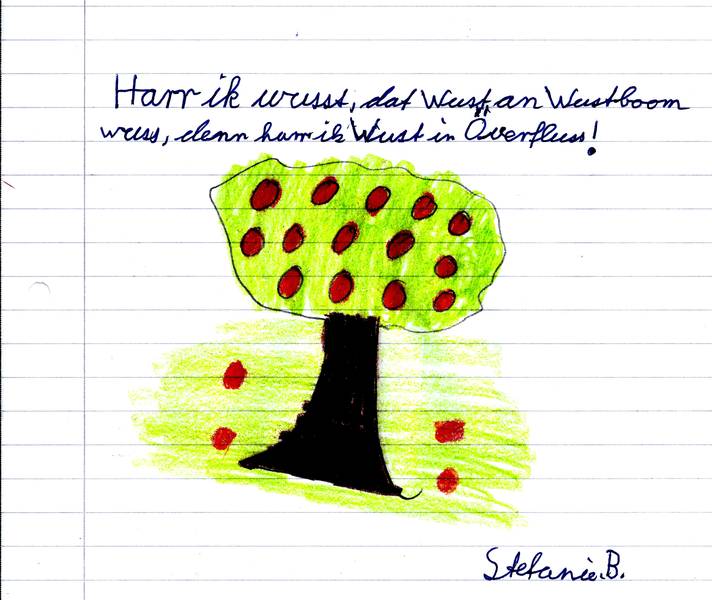 Harr ik wusst, dat Wust an Wustboom
wuss, denn harr ik Wust in Överfluss!
Stefanie.B.